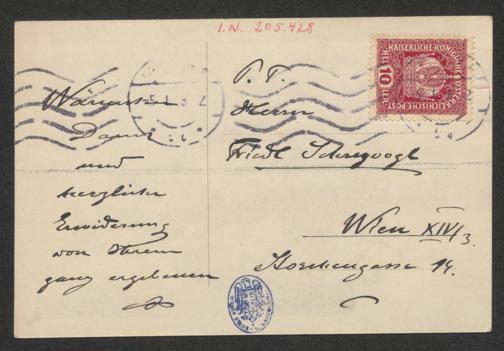 I.N. 205.428
Wärmsten
Dank
und
herzliche
Erwiderung
von Ihrem
ganz ergebenen
P. T.
Herrn
Wien XIV/3.
14.
KAISERLICHE KÖNIGLICHE
ÖSTERREICHISCHE POST
10
HELLER